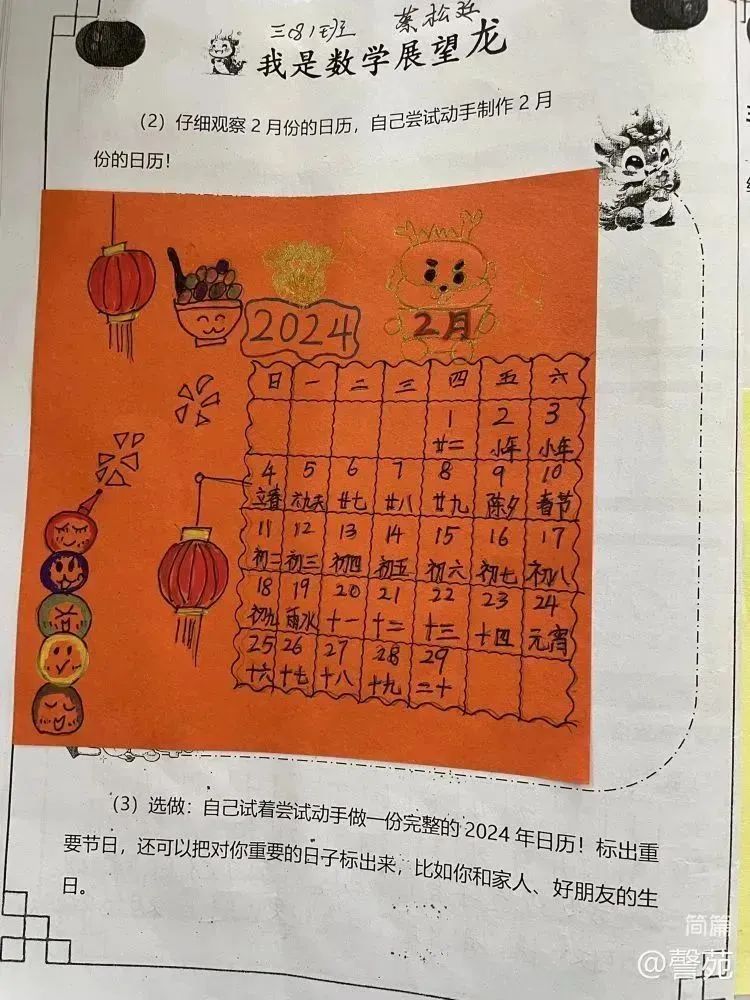 三(8)班 蔡松延
我是数学展望龙
(2)仔细观察2月份的日历,自己尝试动手制作2月
份的日历!
2024 2月
日 一 二 三 四 五 六
1 2 3
廿二 小年 小年
4 5 6 7 8 9 10
立春 六九天 廿七 廿八 廿九 除夕 春节
11 12 13 14 15 16 17
初二 初三 初四 初五 初六 初七 初八
18 19 20 21 22 23 24
初九 雨水 十一 十二 十三 十四 元宵
25 26 27 28 29
十六 十七 十八 十九 二十
(3)选做:自己试着尝试动手做一份完整的2024年日历!标出重
要节日,还可以把对你重要的日子标出来,比如你和家人、好朋友的生
日。
简篇
@謦苑